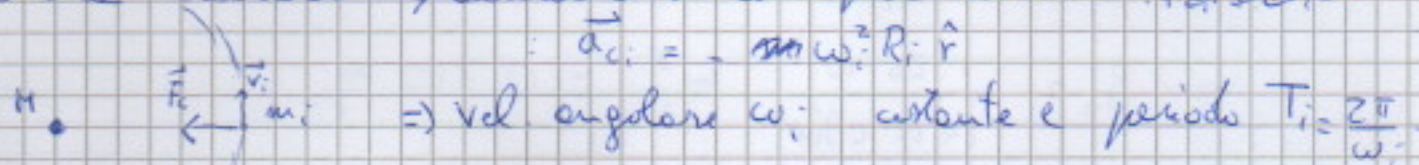 : a⃗_ci = - ω_i² R_i r̂
M F⃗_c v⃗_i m_i => vel. angolare ω_i costante e periodo T_i = 2π/ω_i